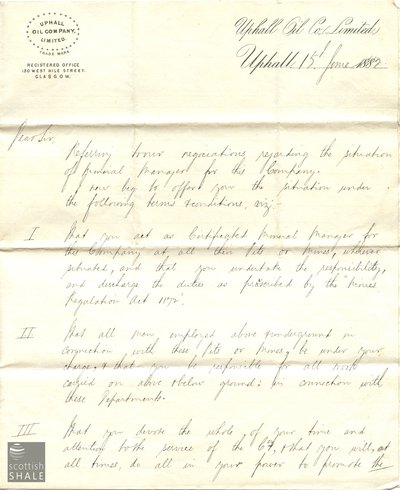 UPHALL
OIL COMPANY,
LIMITED.
TRADE MARK
REGISTERED OFFICE
130 WEST NILE STREET.
GLASGOW.
Uphall Oil Co. Limited,
Uphall, 1st June 1882
Dear Sir,
Referring to our negociations regarding the situation
of Mineral Manager for this Company.
I now beg to offer you the situation under
the following terms & conditions, viz:-
I That you act as Certificated Mineral Manager for
the Company at all their Pits or Mines, wherever
situated, and that you undertake the responsibility,
and discharge the duties as prescribed by the Mines
Regulation Act 1872.
II That all men employed above & underground in
connection with these Pits or Mines, be under your
charge, & that you be responsible for all work
carried on above & below ground: in connection with
these Departments.
III That you devote the whole of your time and
attention to the service of the Coy, & that you will, at
all times, do all in your power to promote the
scottish
SHALE